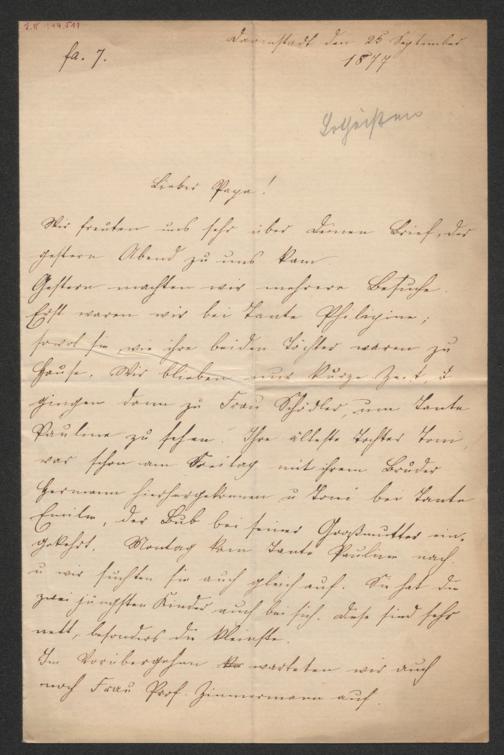 Darmstadt den 25 September
1877
fa. 7.
Lieber Papa!
Wir freuten uns sehr über Deinen Brief, der
gestern Abend zu uns kam
Gestern machten wir mehrere Besuche.
Erst waren wir bei Tante Philipine;
sowol sie wie ihre beiden Töchter waren zu
Hause. Wir blieben nur kurze Zeit, u
gingen dann zu Frau Schödler, um Tante
Pauline zu sehen. Ihre älteste Tochter Toni,
war schon am Freitag mit ihrem Bruder
Hermann hierhergekommen u Toni bei Tante
Emilie, der Bub bei seiner Großmutter ein-
gekehrt. Montag kam Tante Pauline nach
u wir suchten sie auch gleich auf. Sie hat die
zwei jüngsten Kinder auch bei sich. Diese sind sehr
nett, besonders die kleinste.
Im Vorübergehen warteten wir auch
noch Frau Prof. Zimmermann auf.